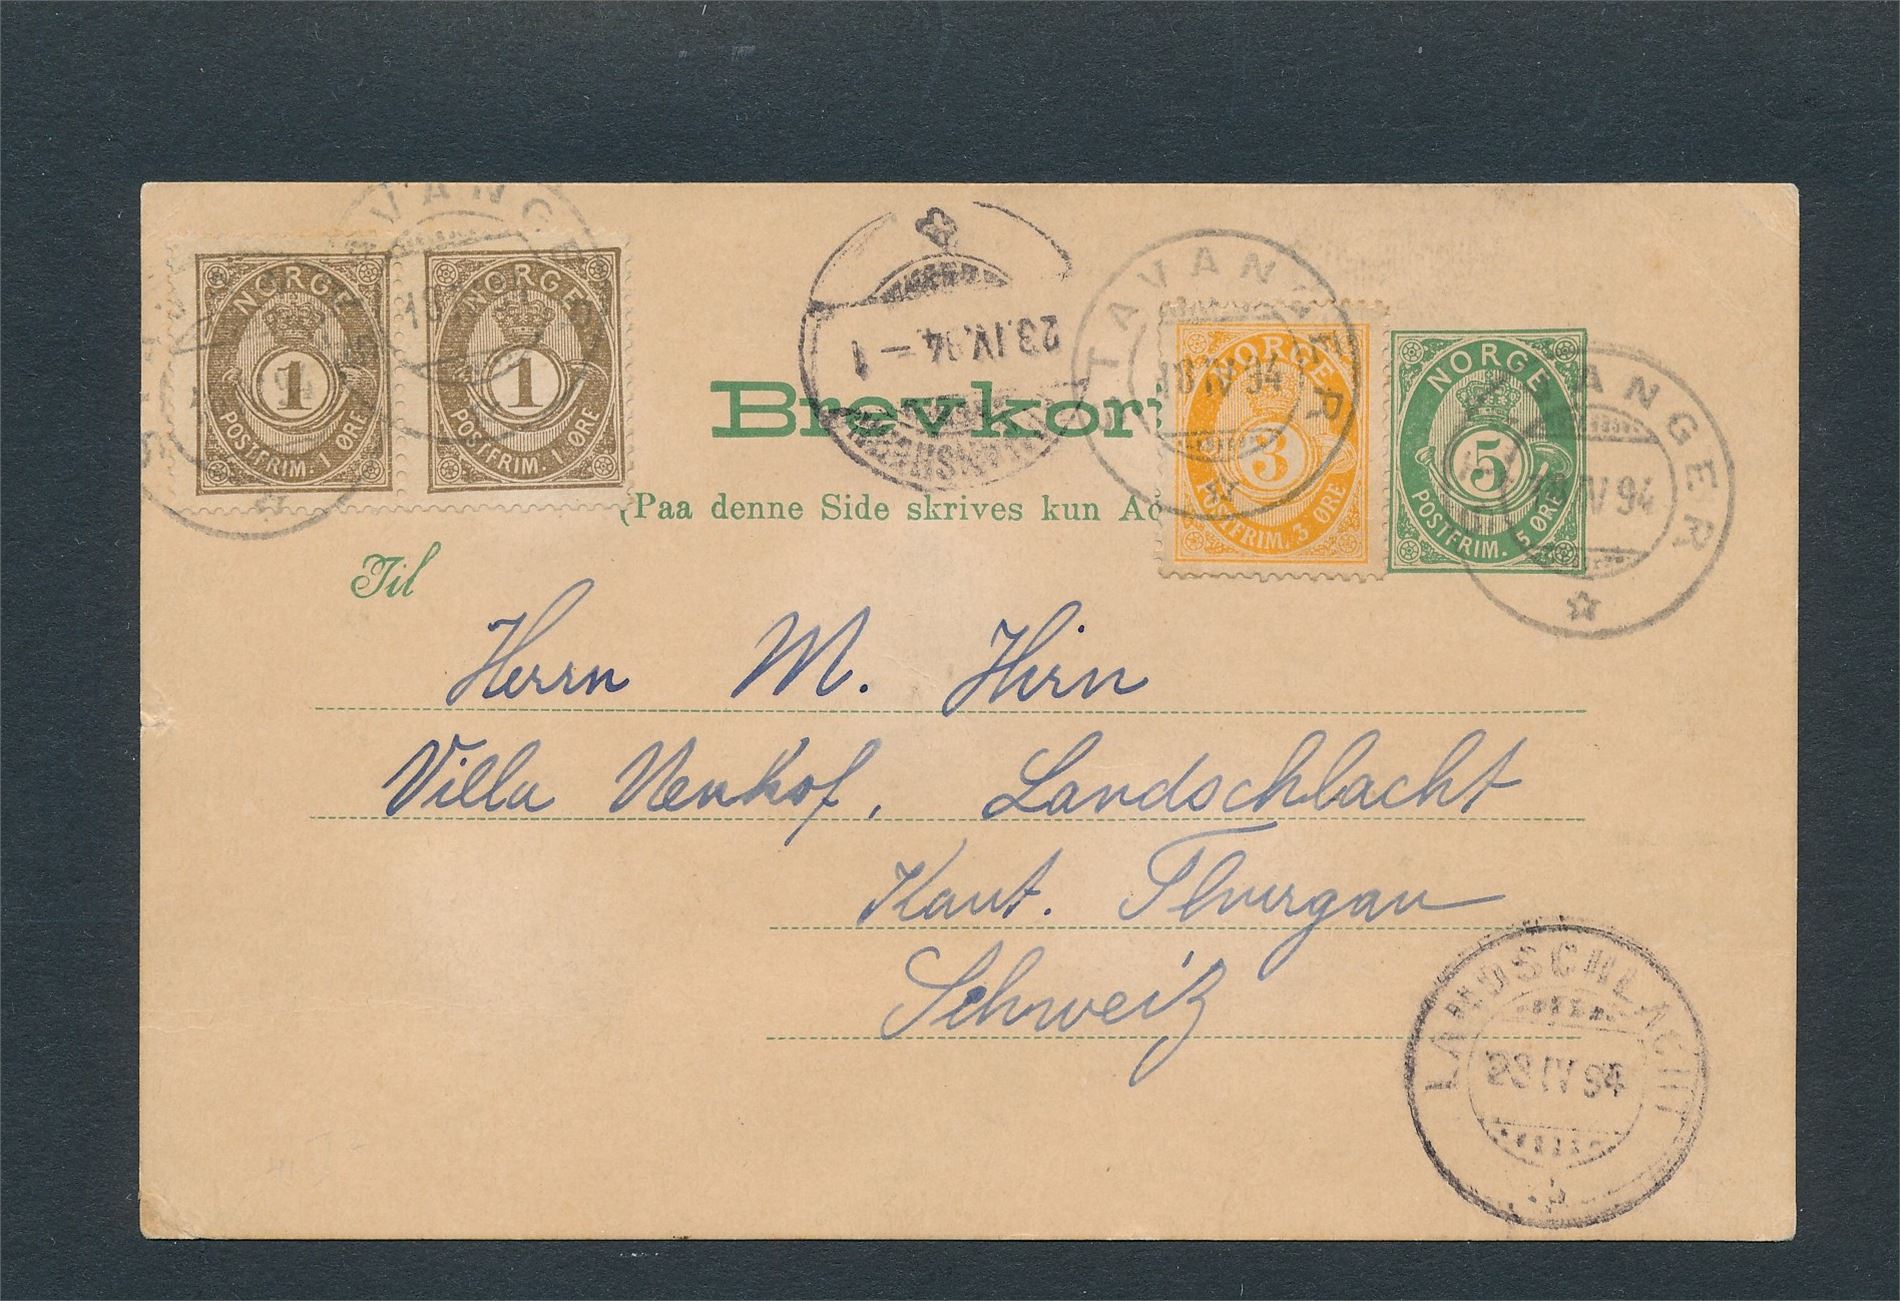 NORGE
1
POSTFRIM. 1 ØRE
NORGE
1
POSTFRIM. 1 ØRE
23.IV.94.–1
STAVANGER
18 IV 94
NORGE
3
POSTFRIM. 3 ØRE
NORGE
5
POSTFRIM. 5 ØRE
ANGER
18 IV 94
Brevkor
(Paa denne Side skrives kun Ad
Til
Herrn M. Hirn
Villa Neuhof, Landschlacht
Kant. Thurgau
Schweiz
LANDSCHLACHT
23 IV 94